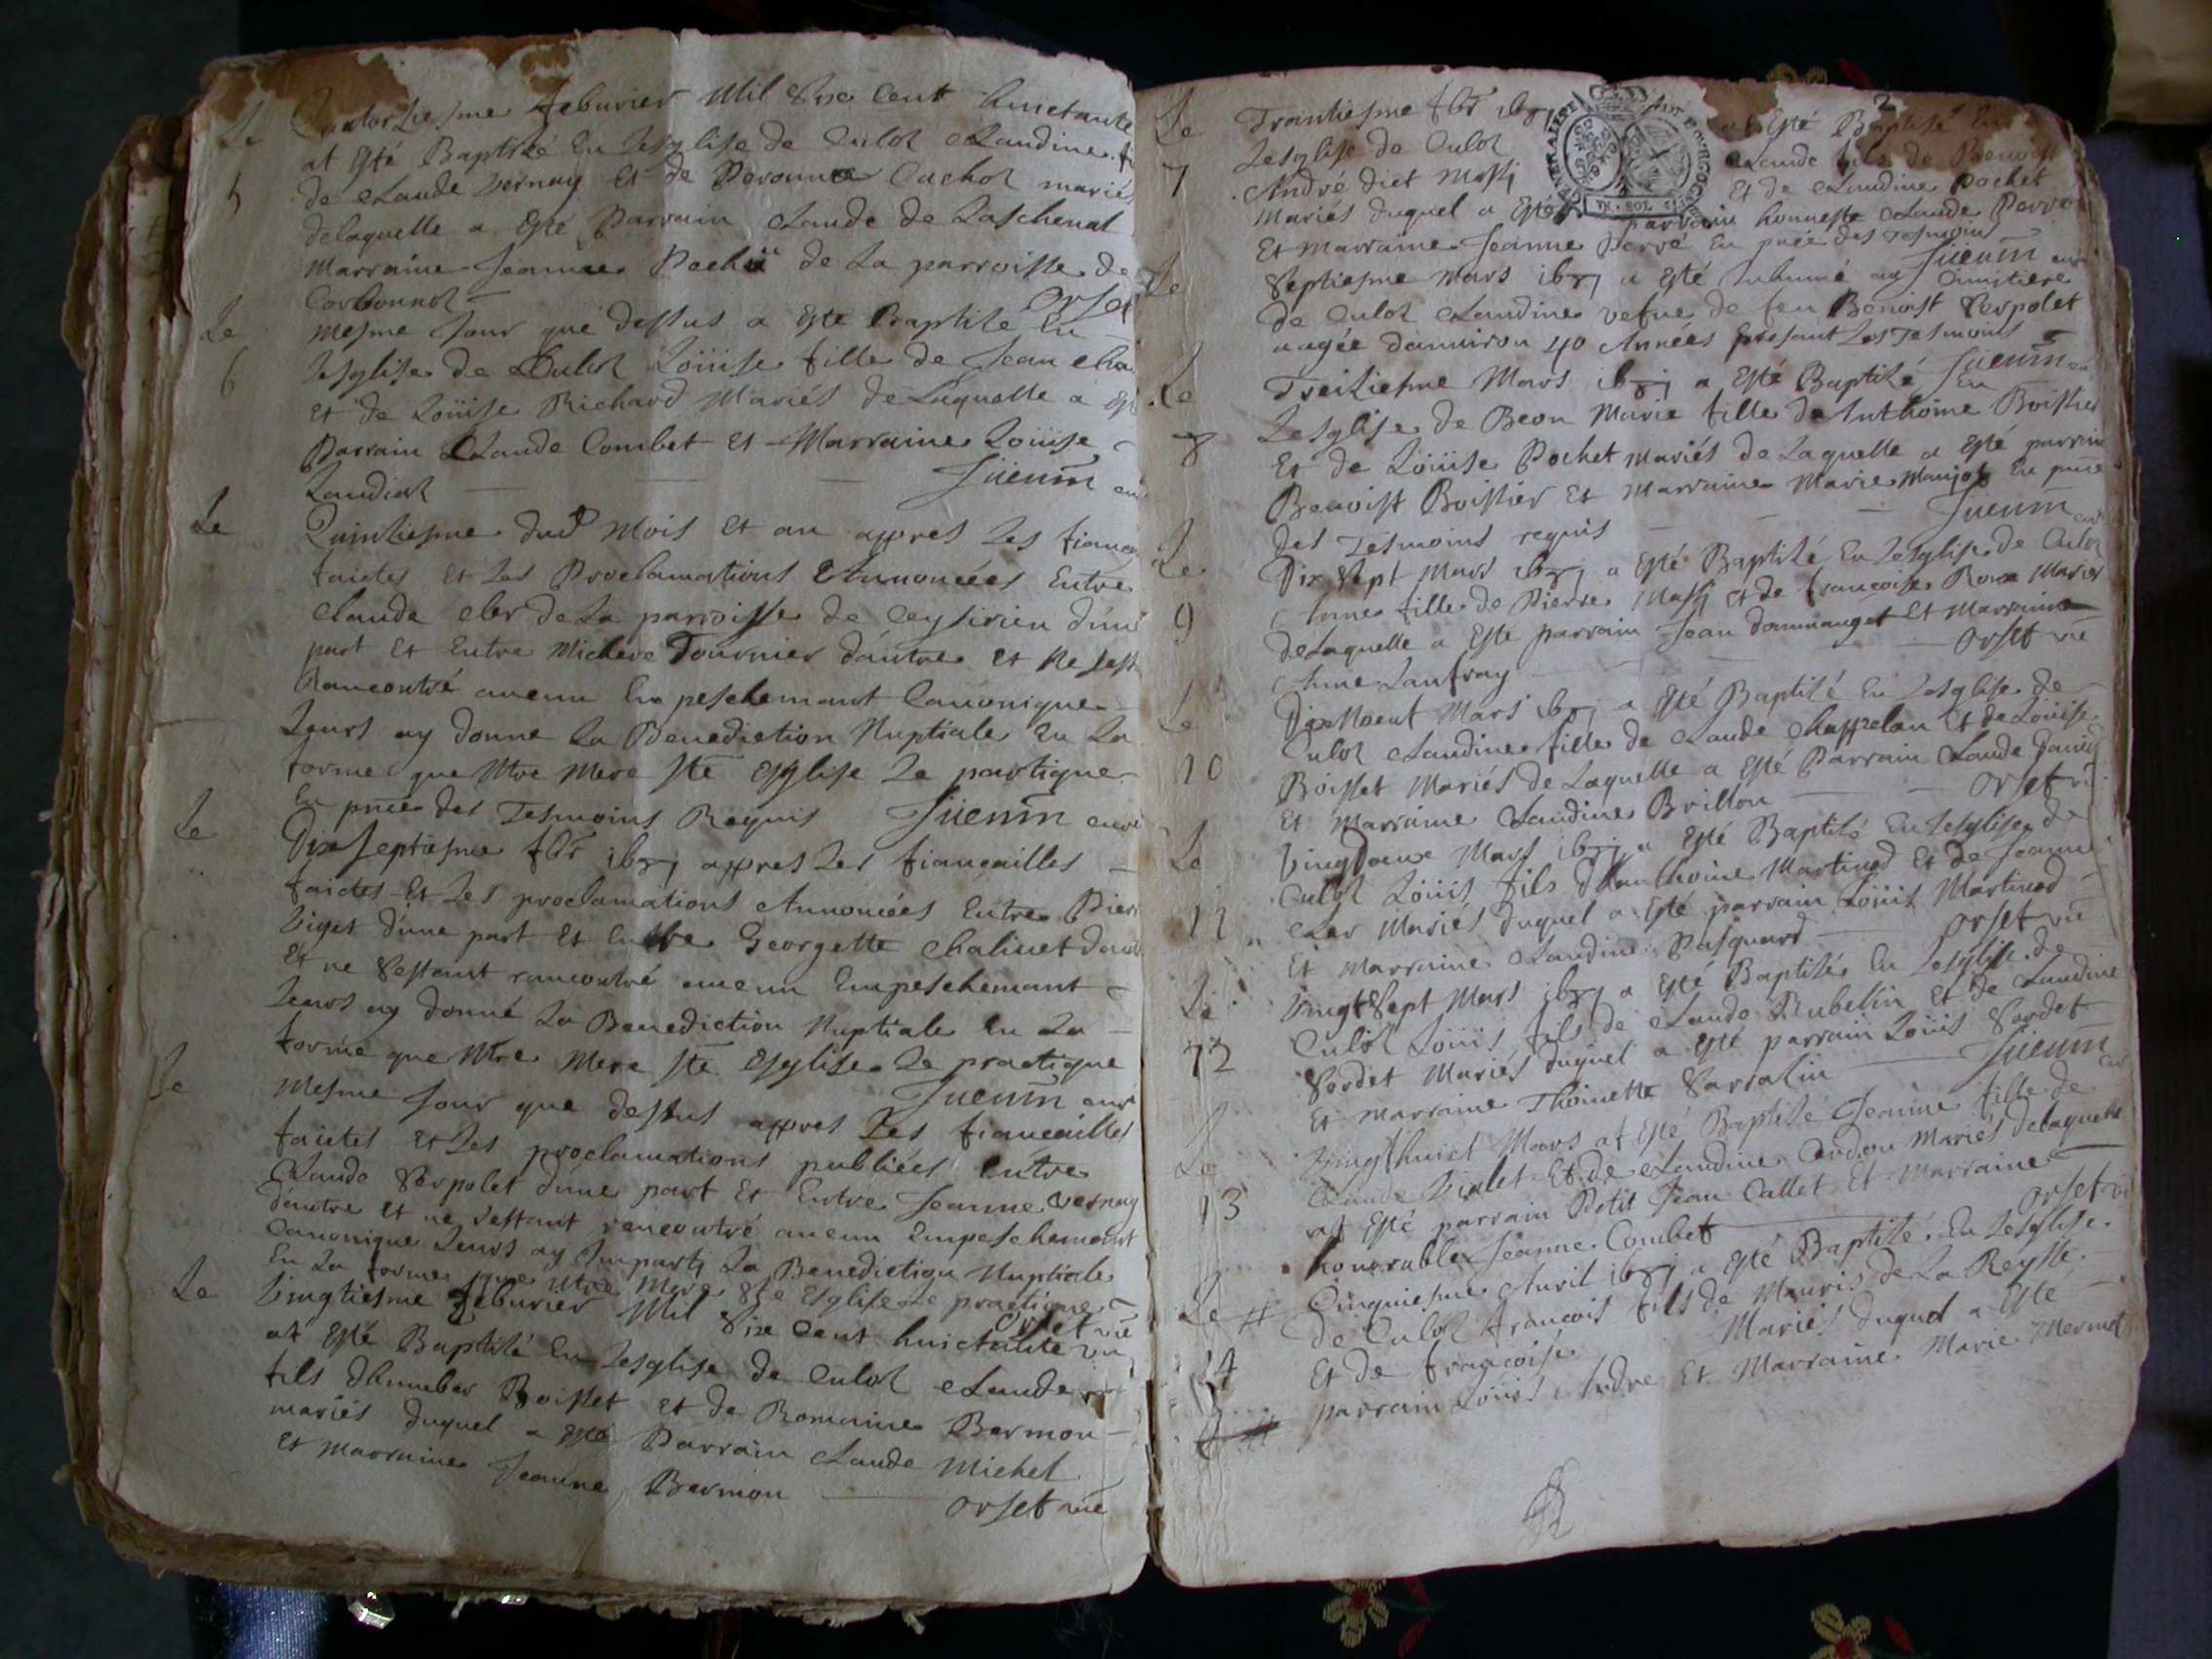 Le Quatorziesme feburier Mil Six Cent huictante
at Esté Baptisé En Lesglise de Culoz Claudine fi
5 de Claude Vernay Et de Peronne Cachol mariés
delaquelle a Esté Parrain Claude de Laschenal
Marraine Jeanne de La parroisse de
Corbonnol Orset
Le mesme Jour que dessus a Este Baptisé En
6 Lesglise de Culoz Loüise fille de Jean
Et de Loüise Richard Mariés de Laquelle a Est
Parrain Claude Combet Et Marraine Loüise
Juenin curé
Le Quinziesme dud Mois Et an appres Les fiance
faictes Et Les Proclamations Annoncées Entre
Claude Cler de La parroisse de Ceysirieu d'une
part Et Entre Micheve Tournier d'autre Et Ne sest
Rancontré aucun Empeschemant Canonique
Leurs ay donne La Benediction Nuptiale En La
forme que Ntre Mere Ste Esglise Le practique
En pnce des Tesmoins Requis Juenin curé
Le Dix septiesme fbr 1681 appres Les fiancailles
faictes Et Les proclamations Annoncées Entre Pierr
Viget d'une part Et Entre Georgette Chalinet dau
Et ne Sestant rancontré aucun Empeschemant
Leurs ay donné La Benediction Nuptiale En La
forme que Ntre Mere Ste Esglise Le practique
Juenin curé
Le Mesme Jour que dessus appres Les fiancailles
faictes Et Les proclamations publiées Entre
Claude Serpolet d'une part Et Entre Jeanne Vernay
d'autre Et ne sestant rencontré aucun Empeschemant
Canonique Leurs ay Imparti La Benediction Nuptiale
En La forme que Ntre Mere Ste Esglise Le practique
Orset vic
Le Vingtiesme feburier Mil Six Cent huictante un
at Esté Baptisé En Lesglise de Culoz Claude
fils dhumber Boisset et de Romaine Bermon
mariés duquel a Esté Parrain Claude Michel
Et Marraine Jeanne Bermon Orset vic
2
Le Trantiesme fbr 1681 at Esté Baptisé En
Lesglise de Culoz Claude fils de Benoist
7 André diet Massi Et de Claudine Pochet
Mariés duquel a Esté parrain honneste Claude Perre
Et Marraine Jeanne Perré En pnce des Tesmoins
Juenin curé
Le Septiesme Mars 1681 a Esté Inhumé au Cimitiere
de Culoz Claudine vefue de feu Benoist Serpolet
aagée d'anuiron 40 Années presant Les Tesmoins
Juenin
Le Treiziesme Mars 1681 a Esté Baptisé En
Lesglise de Beon Marie fille de Anthoine Boissier
8 Et de Loüise Pochet mariés de Laquelle a Esté parrain
Benoist Boissier Et Marraine Marie Maujot En pnce
des Tesmoins requis Juenin curé
Le Dix Sept Mars 1681 a Esté Baptisé En Lesglise de Culoz
9 Anne fille de Pierre Massi et de francoise Roux Mariés
de Laquelle a Esté parrain Jean dommanget Et Marraine
Anne Lanfray Orset vic
Le Dix Noeuf Mars 1681 a Esté Baptisé En Lesglise de
Culoz Claudine fille de Claude Chappelan Et de Loüise
10 Boisset Mariés de Laquelle a Esté Parrain Claude
Et Marraine Claudine Brillon Orset vi
Le Vingt Deux Mars 1681 a Esté Baptisé En Lesglise de
Culoz Loüis fils d'Anthoine Martinod Et de Jeanne
11 Cler Mariés duquel a Esté parrain Loüis Martinod
Et Marraine Claudine Pasquard Orset vic
Le Vingt Sept Mars 1681 a Esté Baptisés En Lesglise de
Culoz Loüis fils de Claude Rubellin Et de Claudine
12 Sordet Mariés duquel a Esté parrain Loüis Sordet
Et Marraine Thoinette Sarralin Juenin curé
Le Vingt huict Mars at Esté Baptisé Jeanne fille de
Claude Violet Et de Claudine Cordon Mariés delaquelle
13 at Esté parrain Petit Jean Callet Et Marraine
honorable Jeanne Combet Orset vi
Le # Cinquiesme Auril 1681 a Esté Baptisé En Lesglise
de Culoz francois fils de Mauris de La Reysse
14 Et de francoise Mariés duquel a Esté
parrain Loüis Andre Et Marraine Marie Mermet